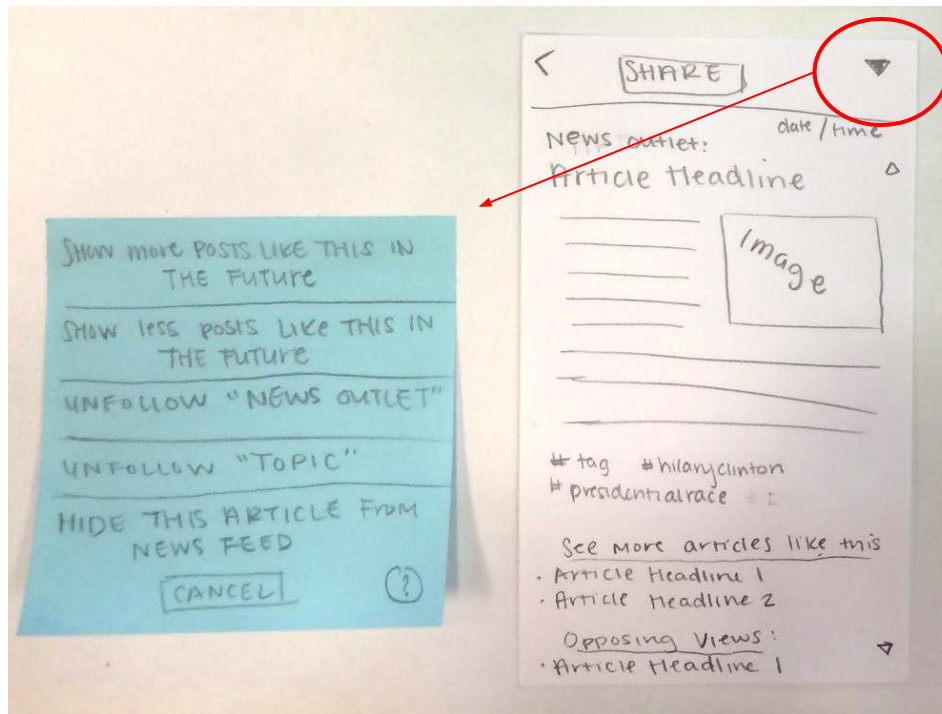 SHOW more POSTS LIKE THIS IN
THE FUTURE
SHOW less posts LIKE THIS IN
THE FUTURE
UNFOLLOW "NEWS OUTLET"
UNFOLLOW "TOPIC"
HIDE THIS ARTICLE From
NEWS FEED
CANCEL ?
< SHARE
date/time
News outlet:
Article Headline
Image
# tag #hilaryclinton
# presidentialrace
See more articles like this
· Article Headline 1
· Article Headline 2
Opposing Views:
· Article Headline 1